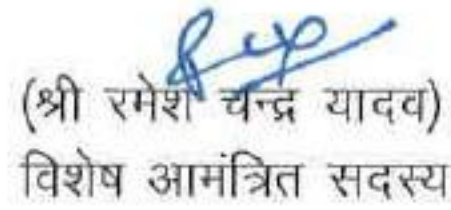 (श्री रमेश चन्द्र यादव)
विशेष आमंत्रित सदस्य